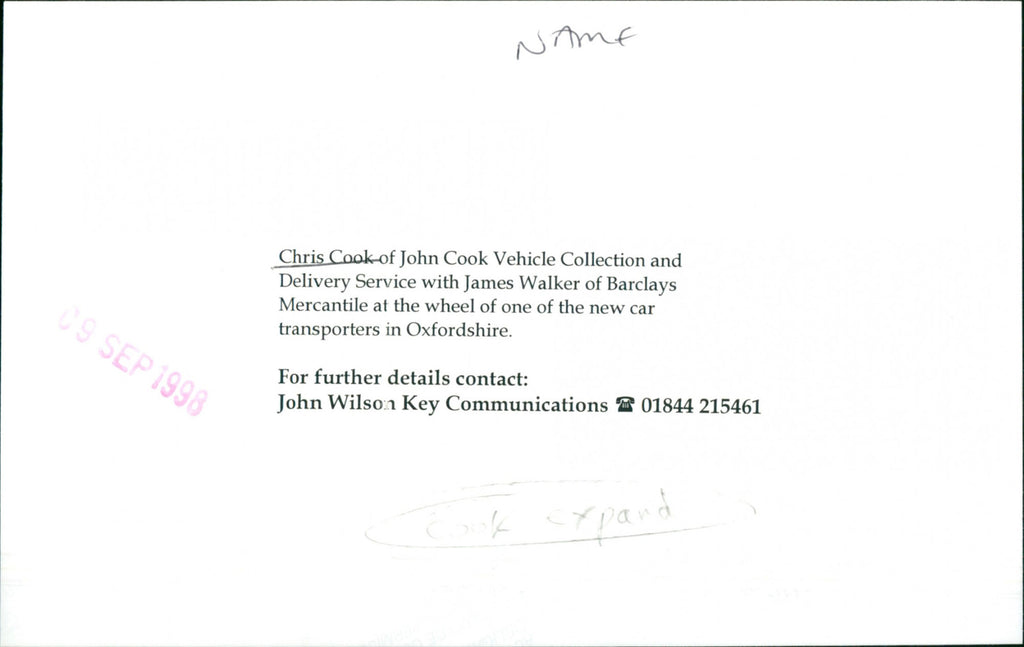 NAME
Chris Cook of John Cook Vehicle Collection and
Delivery Service with James Walker of Barclays
Mercantile at the wheel of one of the new car
transporters in Oxfordshire.
09 SEP 1998
For further details contact:
John Wilson Key Communications ☎ 01844 215461
Cook expand